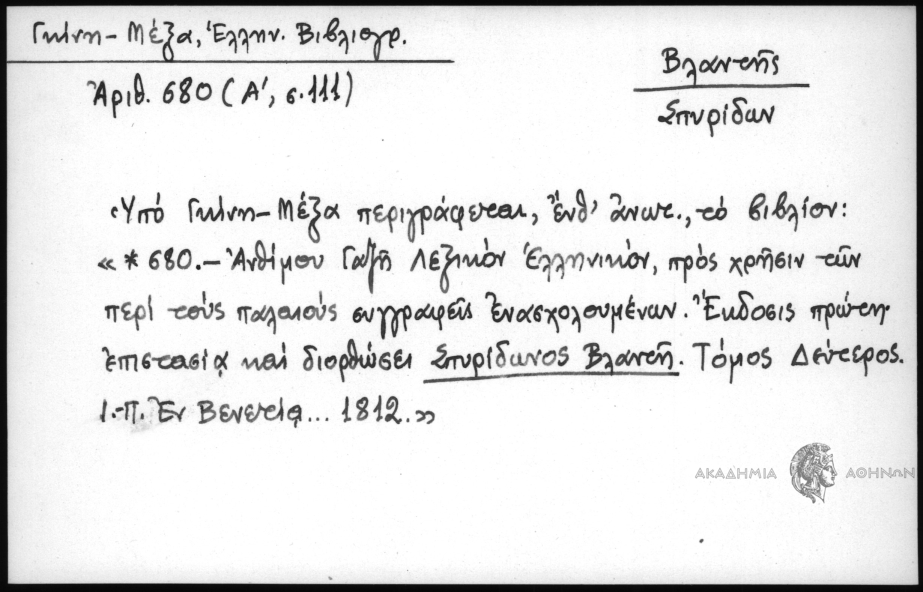 Γκίνη-Μέξα, Ἑλλην. Βιβλιογρ.
Ἀριθ. 680 (Α΄, σ. 111)
Βλαντῆς
Σπυρίδων
Ὑπό Γκίνη-Μέξα περιγράφεται, ἔνθ' ἄνωτ., τό βιβλίον:
« * 680.- Ἀνθίμου Γαζῆ Λεξικόν Ἑλληνικόν, πρός χρῆσιν τῶν
περί τούς παλαιούς συγγραφεῖς ἐνασχολουμένων. Ἔκδοσις πρώτη.
ἐπιστασίᾳ καί διορθώσει Σπυρίδωνος Βλαντῆ. Τόμος Δεύτερος.
Ι.-Π. Ἐν Βενετίᾳ... 1812.»
ΑΚΑΔΗΜΙΑ ΑΘΗΝΩΝ